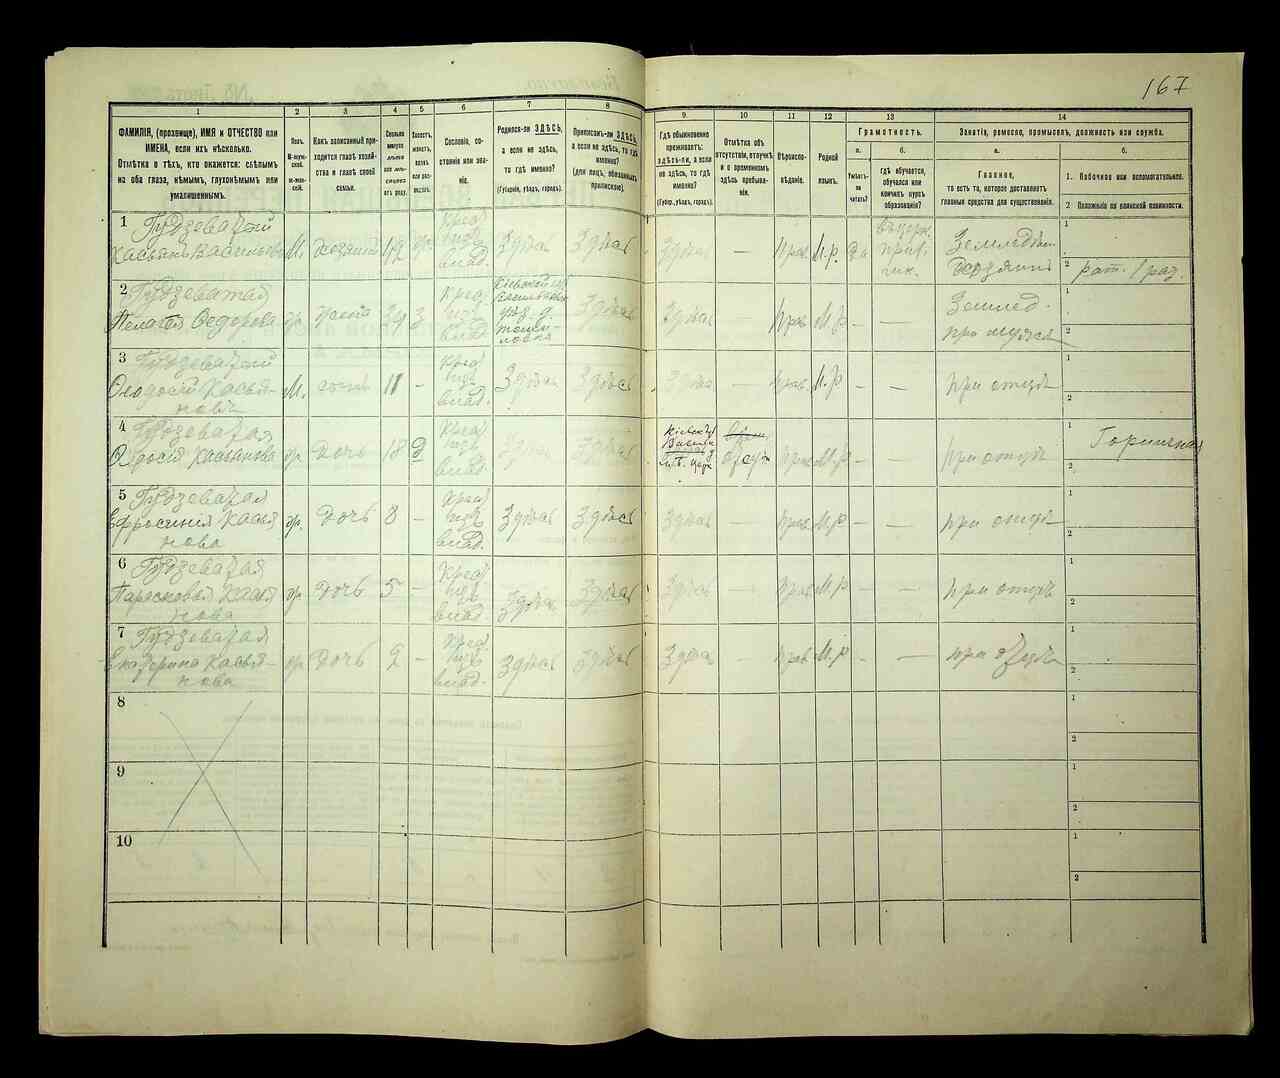 167
1
2
3
4
5
6
7
8
9.
10
11
12
13
14
ФАМИЛІЯ, (прозвище), ИМЯ и ОТЧЕСТВО или
ИМЕНА, если ихъ нѣсколько.
Отмѣтка о тѣхъ, кто окажется: слѣпымъ
на оба глаза, нѣмымъ, глухонѣмымъ или
умалишеннымъ.
Полъ.
М-мужской.
Ж-женскій.
Какъ записанный при-
ходится главѣ хозяй-
ства и главѣ своей
семьи.
Сколько
минуло
лѣтъ
или мѣ-
сяцевъ
отъ роду.
Холостъ,
женатъ,
вдовъ
или раз-
веденъ.
Сословіе, со-
стояніе или зва-
ніе.
Родился-ли ЗДѢСЬ,
а если не здѣсь,
то гдѣ именно?
(Губернія, уѣздъ, городъ).
Приписанъ-ли ЗДѢСЬ,
а если не здѣсь, то гдѣ
именно?
(для лицъ, обязанныхъ
припискою).
Гдѣ обыкновенно
проживаетъ:
ЗДѢСЬ-ли, а если
не здѣсь, то гдѣ
именно?
(Губер., уѣздъ, городъ).
Отмѣтка объ
отсутствіи, отлучкѣ
и о временномъ
здѣсь пребыва-
ніи.
Вѣроиспо-
вѣданіе.
Родной
языкъ.
Грамотность.
а.
Умѣетъ-
ли
читать?
б.
гдѣ обучается,
обучался или
кончилъ курсъ
образованія?
Занятіе, ремесло, промыселъ, должность или служба.
а.
Главное,
то есть то, которое доставляетъ
главныя средства для существованія.
б.
1. Побочное или вспомогательное.
2 Положеніе по воинской повинности.
1 Гудзеватый
Касьянъ Васильевъ М. хозяинъ 42 Крес. изъ влад. Здѣсь Здѣсь Здѣсь — Прав. М.р. да Земледѣлія хозяинъ
1
2
2 Гудзеватая
Пелагія Федорова жр жена 39 З Крес. изъ влад. Кіевской Здѣсь Здѣсь — Прав. М.р — — Землед. при мужѣ
1
2
3 Гудзеватый
Федосій Касья-
новъ М. сынъ 11 — Крес. изъ влад. Здѣсь Здѣсь Здѣсь — Прав. М.р. — — при отцѣ
1
2
4 Гудзеватая
Касьянова жр дочь 18 д Крес. изъ влад. Здѣсь Здѣсь Прав М.р — — при отцѣ
1 Горничная
2
5 Гудзеватая
Ефросинія Касья
нова жр. дочь 8 — Крес. изъ влад. Здѣсь Здѣсь Здѣсь — Прав М.р — — при отцѣ
1
2
6 Гудзеватая
Парасковья Касья
нова жр дочь 5 — Крес. изъ влад. Здѣсь Здѣсь Здѣсь — Прав М.р — — при отцѣ
1
2
7 Гудзеватая
Екатерина Касья-
нова жр. дочь 2 — Крес. изъ влад. Здѣсь Здѣсь Здѣсь — Прав М.р — — при отцѣ
1
2
8
1
2
9
1
2
10
1
2